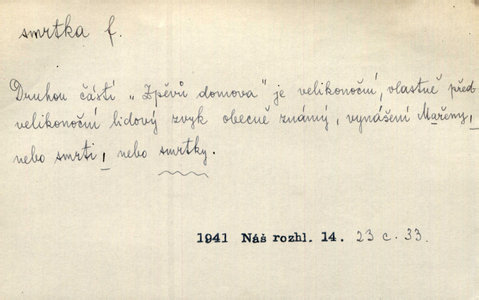 smrtka f.
Druhou částí „Zpěvů domova" je velikonoční, vlastně před
velikonoční lidový zvyk obecně známý, vynášení Mařeny,
nebo smrti, nebo smrtky.
1941 Náš rozhl. 14. 23 c. 33.